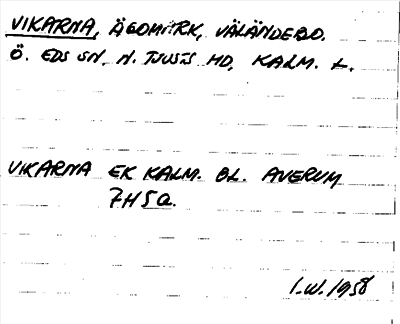 VIKARNA, ÄGOMARK, VÄLÄNDEBO.
Ö. EDS SN, N. TJUSTS HD, KALM. L.
VIKARNA EK KALM. BL. AVERUM
7H5a.
I.W. 1958